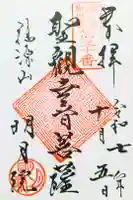 奉拝
令和七年
十月五日
聖観世音菩薩
福源山
明月院